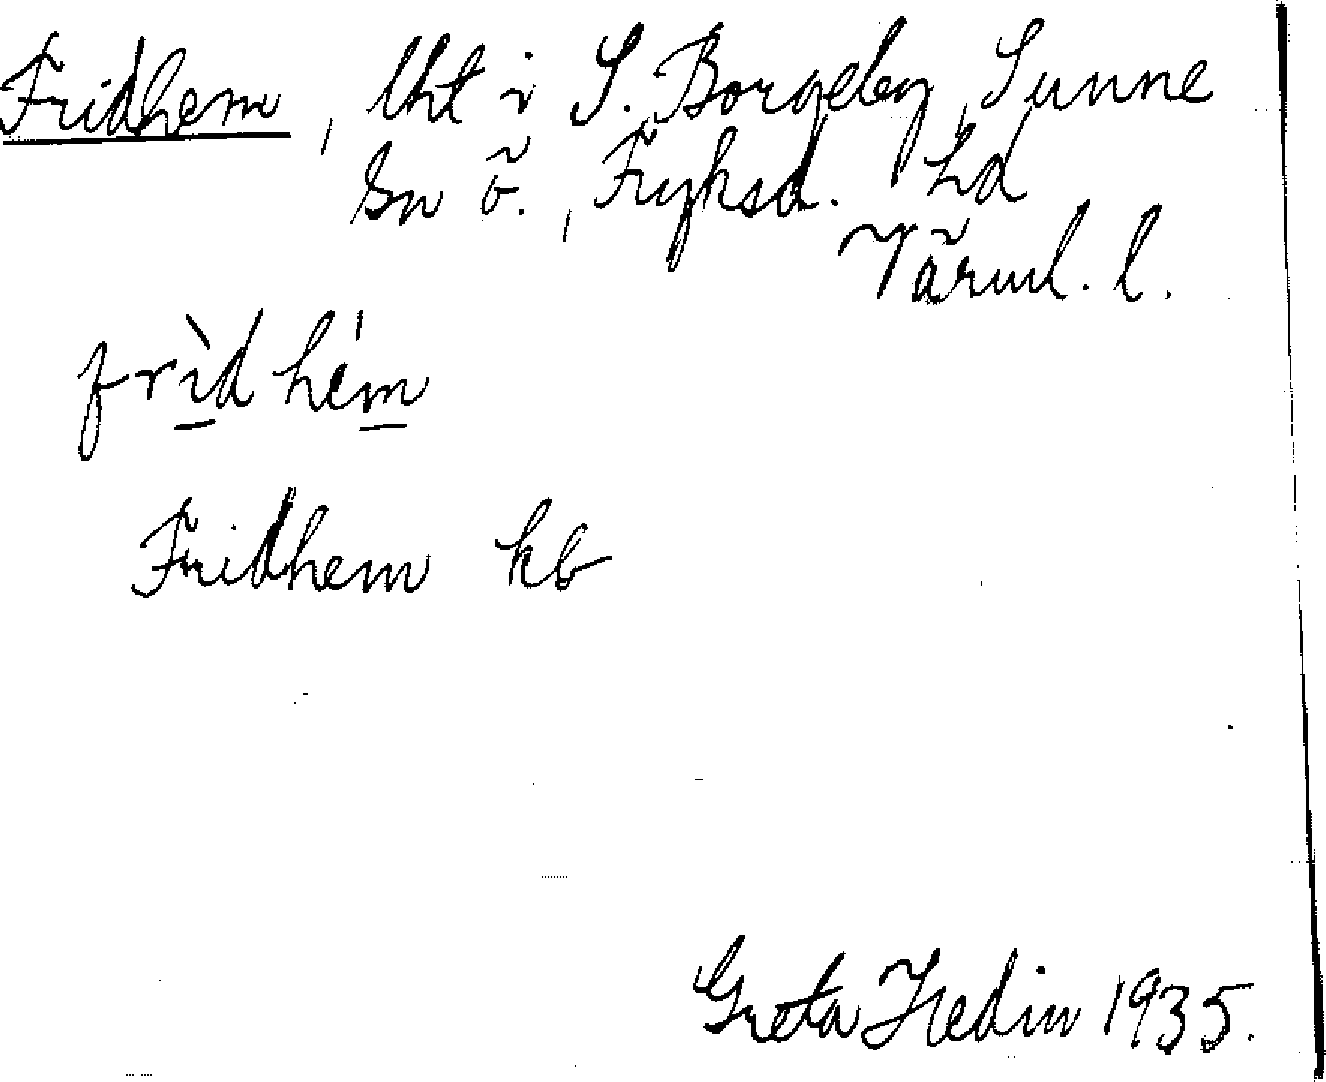 Fridhem, lht i S. Borgeby, Sunne
sn ö., Fryksd. hd
Värml. l.
frìdhém
Fridhem kb
Greta Hedin 1935.